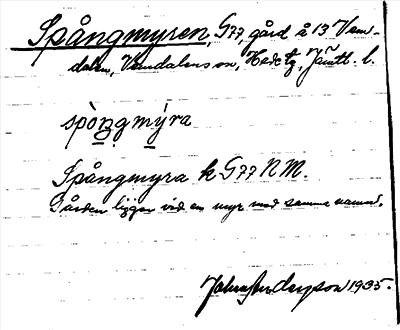 Spångmyren, G77, gård å 13 Vem-
dalen, Vemdalens sn, Hede tg, Jämtl. l.
spòngmýra
Spångmyra k G77 N M.
Gården ligger vid en myr med samma namn.
Johns Andersson 1935.